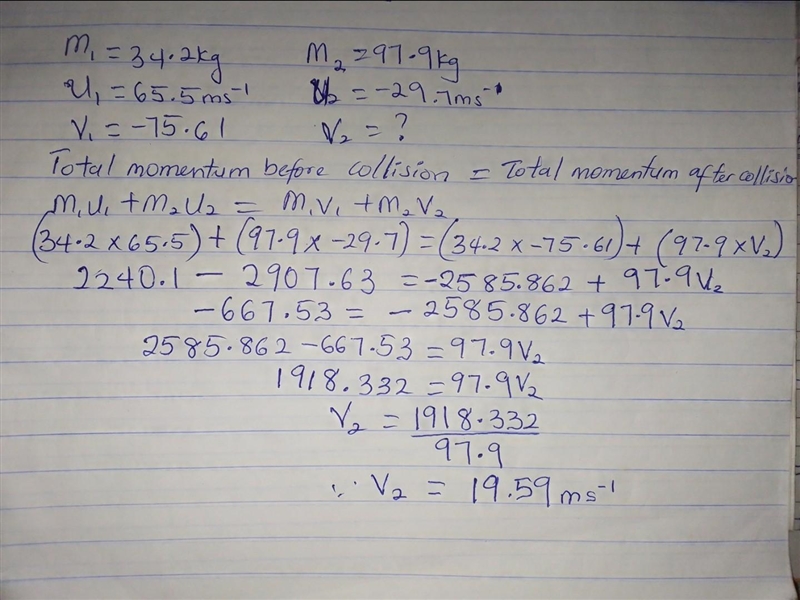 M₁ = 34.2kg M₂ = 97.9kg
U₁ = 65.5ms⁻¹ U₂ = -29.7ms⁻¹
V₁ = -75.61 V₂ = ?
Total momentum before collision = Total momentum after collision
M₁U₁ + M₂U₂ = M₁V₁ + M₂V₂
(34.2 x 65.5) + (97.9 x -29.7) = (34.2 x -75.61) + (97.9 x V₂)
2240.1 - 2907.63 = -2585.862 + 97.9V₂
-667.53 = - 2585.862 + 97.9V₂
2585.862 - 667.53 = 97.9V₂
1918.332 = 97.9V₂
V₂ = 1918.332
97.9
∵ V₂ = 19.59 ms⁻¹